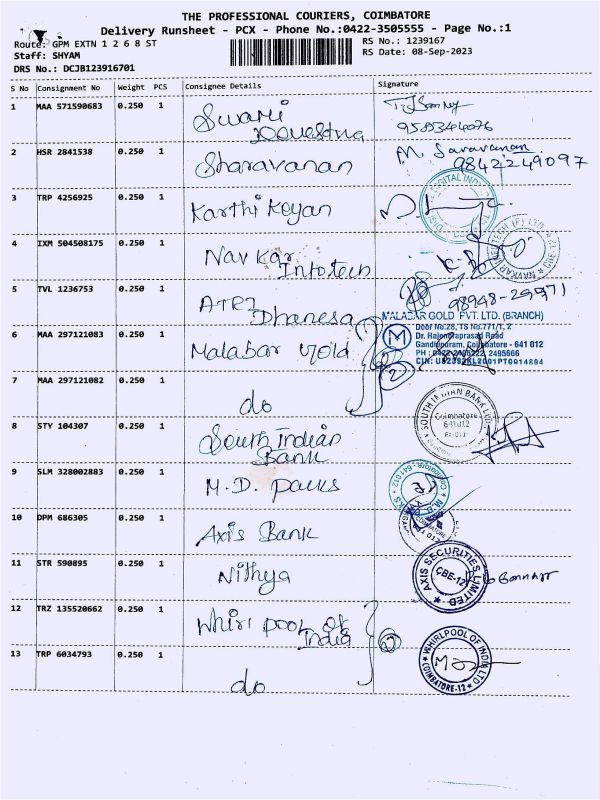 THE PROFESSIONAL COURIERS, COIMBATORE
Delivery Runsheet - PCX - Phone No.:0422-3505555 - Page No.:1
Route: GPM EXTN 1 2 6 8 ST
RS No.: 1239167
Staff: SHYAM
RS Date: 08-Sep-2023
DRS No.: DCJB123916701
S No Consignment No Weight PCS Consignee Details Signature
1 MAA 571590683 0.250 1 Swami
2 HSR 2841538 0.250 1 Sharavanan M. Saravanan
9842249097
3 TRP 4256925 0.250 1 Karthi Keyan
4 IXM 504508175 0.250 1 Navkar
Infotech
5 TVL 1236753 0.250 1 Dhanesa 98948-29971
MALABAR GOLD PVT. LTD. (BRANCH)
Door No.28, TS No.771/1, 2
6 MAA 297121083 0.250 1 Malabar gold Dr. Rajendraprasad Road
Gandhipuram, Coimbatore - 641 012
7 MAA 297121082 0.250 1 do
SOUTH INDIAN BANK LTD
Coimbatore
641012
8 STY 104307 0.250 1 South Indian
Bank
9 SLM 328002883 0.250 1 M.D. Packs
10 DPM 686305 0.250 1 Axis Bank
11 STR 590895 0.250 1 Nithya AXIS SECURITIES LIMITED
CBE-12
12 TRZ 135520662 0.250 1 Whirl pool of
India
13 TRP 6034793 0.250 1 do WHIRLPOOL OF INDIA LTD
COIMBATORE-12